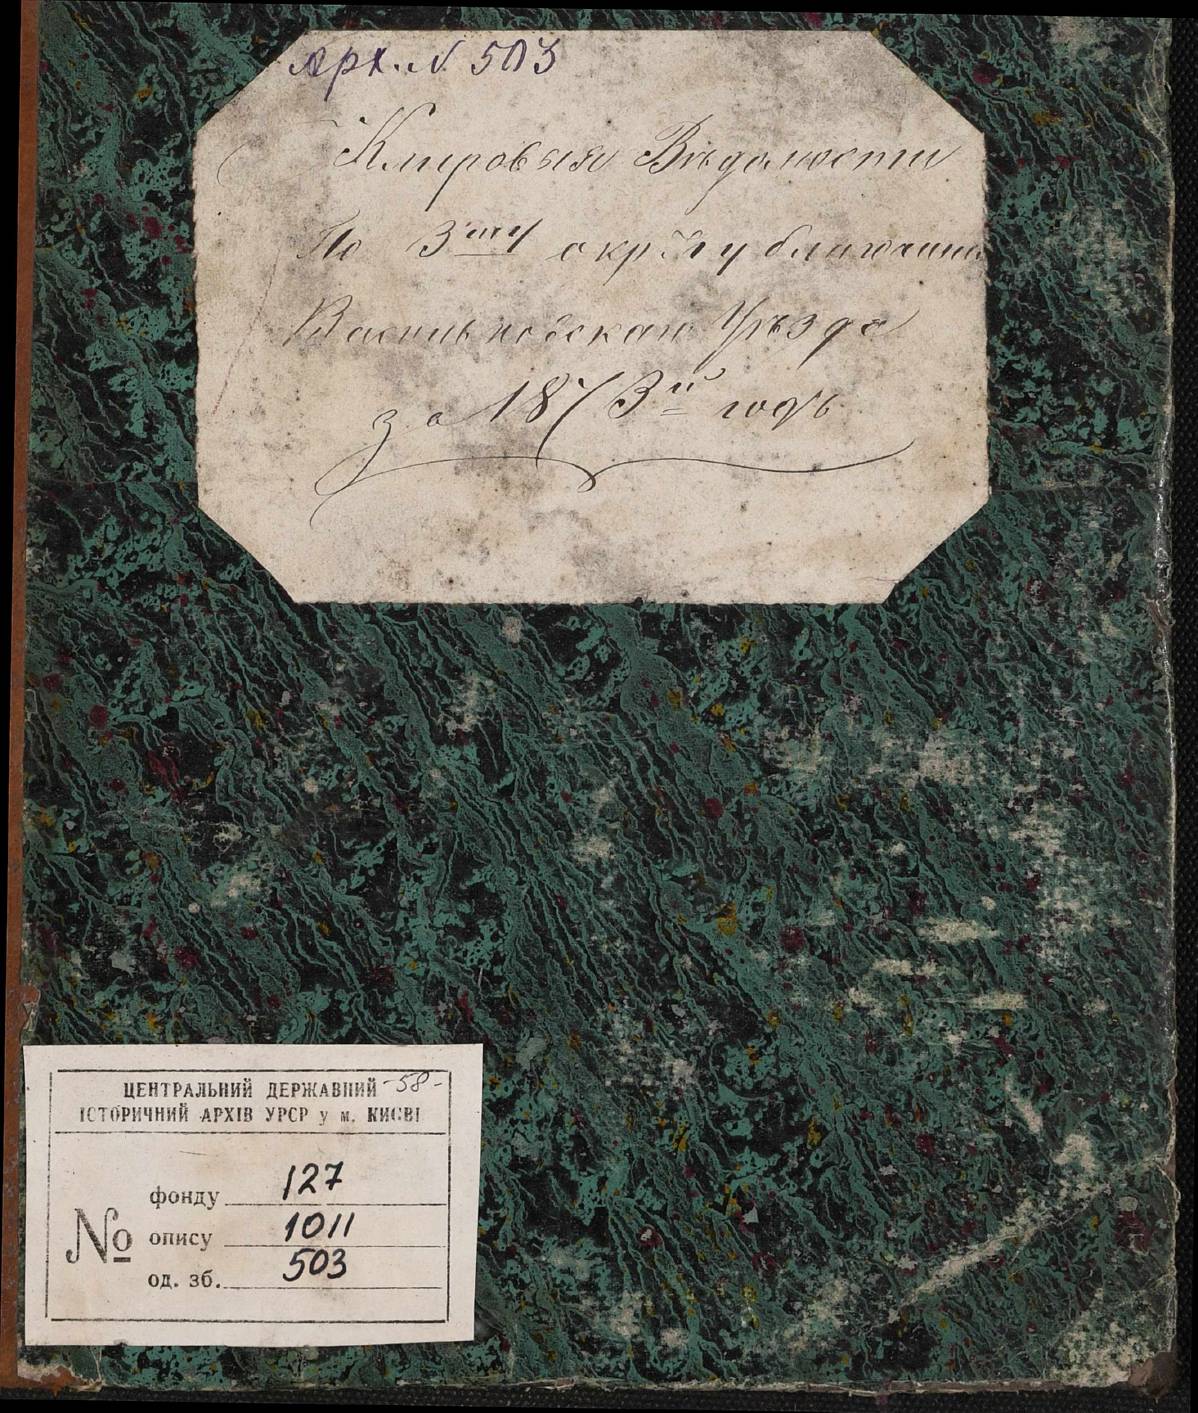 Арх. № 503
Клировыя Вѣдомости
По 3му округу благочинія
Васильковскаго Уѣзда
за 1873й годъ
ЦЕНТРАЛЬНИЙ ДЕРЖАВНИЙ -58-
ІСТОРИЧНИЙ АРХІВ УРСР у м. КИЄВІ
фонду 127
№ опису 1011
од. зб. 503